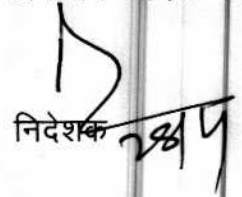 निदेशक
28/4